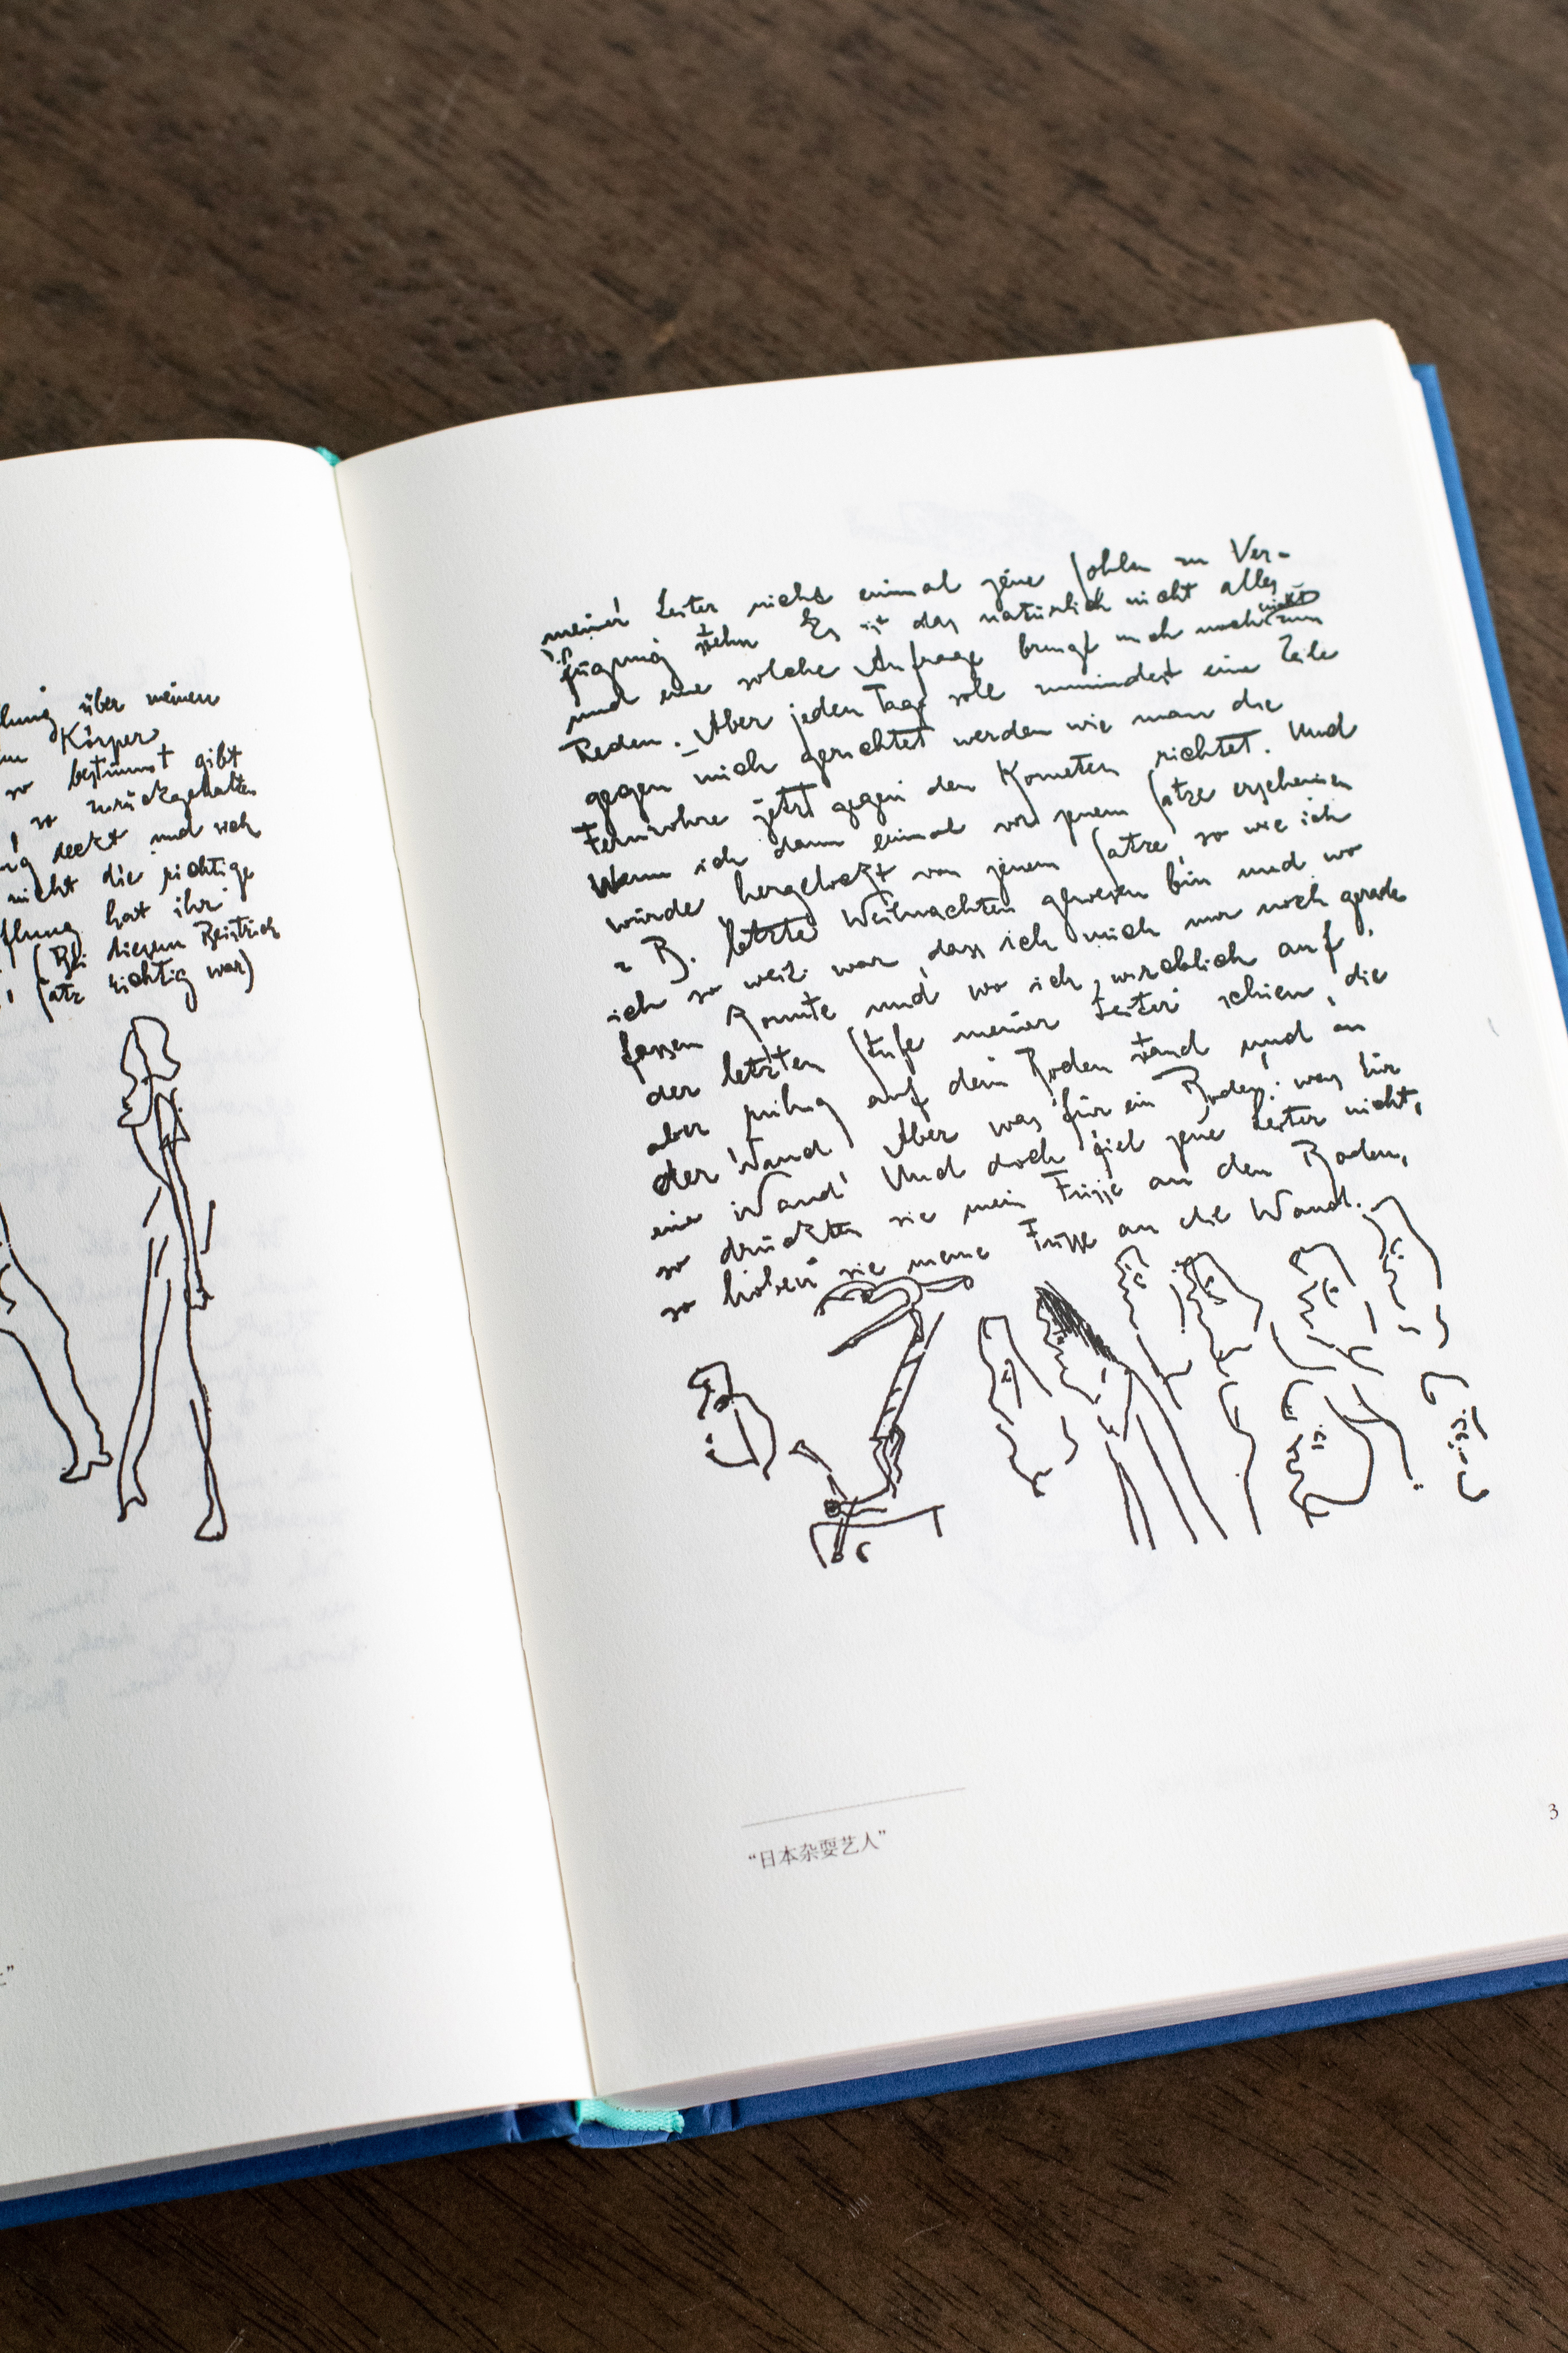 lung über meinen
Körper
so bestimmt gibt
so zurückgehalten
seckt und sich
nicht die richtige
flung hat ihr
(Bei diesem Beistrich
Satz richtig war)
meiner Leiter nicht einmal jene Sohlen zu Ver-
fügung stehn Es ist das natürlich nicht alles
und eine solche Anfrage bringt mich noch nicht zum
Reden. Aber jeden Tage soll zumindest eine Zeile
gegen mich gerichtet werden wie man die
Fernrohre jetzt gegen den Kometen richtet. Und
Wenn ich dann einmal vor jenem Satze erscheinen
würde hergelockt von jenem Satze, so wie ich
z B. letzte Weihnachten gewesen bin und wo
ich so weit war dass ich mich nur noch gerade
fassen konnte und wo ich wirklich auf
der letzten Stufe meiner Leiter schien, die
aber ruhig auf dem Boden stand und an
der Wand Aber was für ein Boden: was für
eine Wand! Und doch fiel jene Leiter nicht,
so drückten sie mein Füsse an den Boden,
so hoben sie meine Füsse an die Wand.
“日本杂耍艺人”
3
”